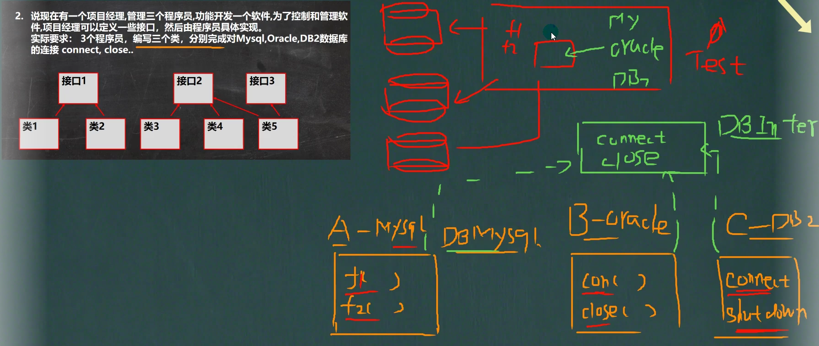 2. 说现在有一个项目经理,管理三个程序员,功能开发一个软件,为了控制和管理软
件,项目经理可以定义一些接口，然后由程序员具体实现。
实际要求： 3个程序员，编写三个类，分别完成对Mysql,Oracle,DB2数据库
的连接 connect, close..
接口1 接口2 接口3
类1 类2 类3 类4 类5
My
oracle
DB2
Test
DBInter
connect
close
A-Mysql
DBMysql
B-oracle
C-DB2
f1( )
f2( )
con( )
close( )
connect
shutdown